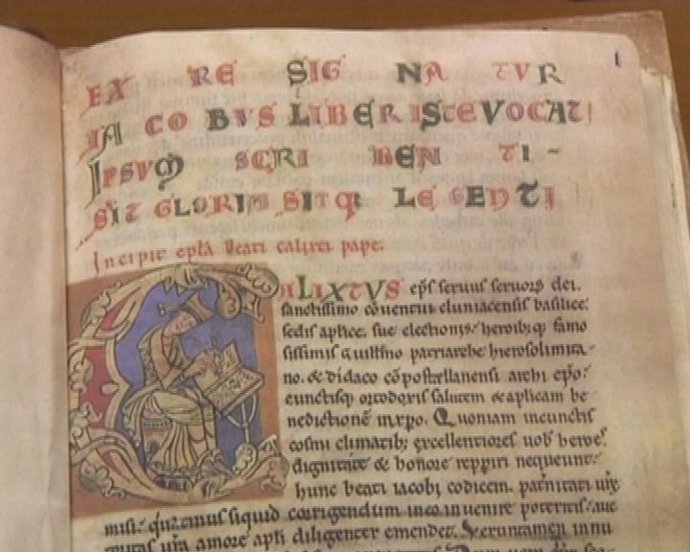 EX RE SIGNATUR
IACOBVS LIBER ISTE VOCAT
IPSVM SCRIBENTI-
SIT GLORIA SITQ LEGENTI
I
Incipit epła beati calixti pape.
CALIXTVS epſ ſeruuſ ſeruorꝫ dei.
ſanctiſſimo cōuentui cluniacenſiſ baſilice.
ſediſ aplice. ſue electioniſ heroibꝫ famo
ſiſſimiſ & uuillmo patriarche hieroſolimita-
no. & didaco cōpoſtellanenſi archi epō.
cunctiſqꝫ ortodoxiſ ſalutem & aplicam be
nedictionē in xpo. Quoniam in cunctiſ
coſmi climatibꝫ excellentioreſ uobiſ heroeſ
dignitate & honore repperiri nequeunt.
hunc beati iacobi codicem. paternitati uře
miſi. quatinuſ ſiquid corrigendum in eo inuenire poteritiſ. auc
uřa amore apłi diligenter emendet. Veruntamen innu